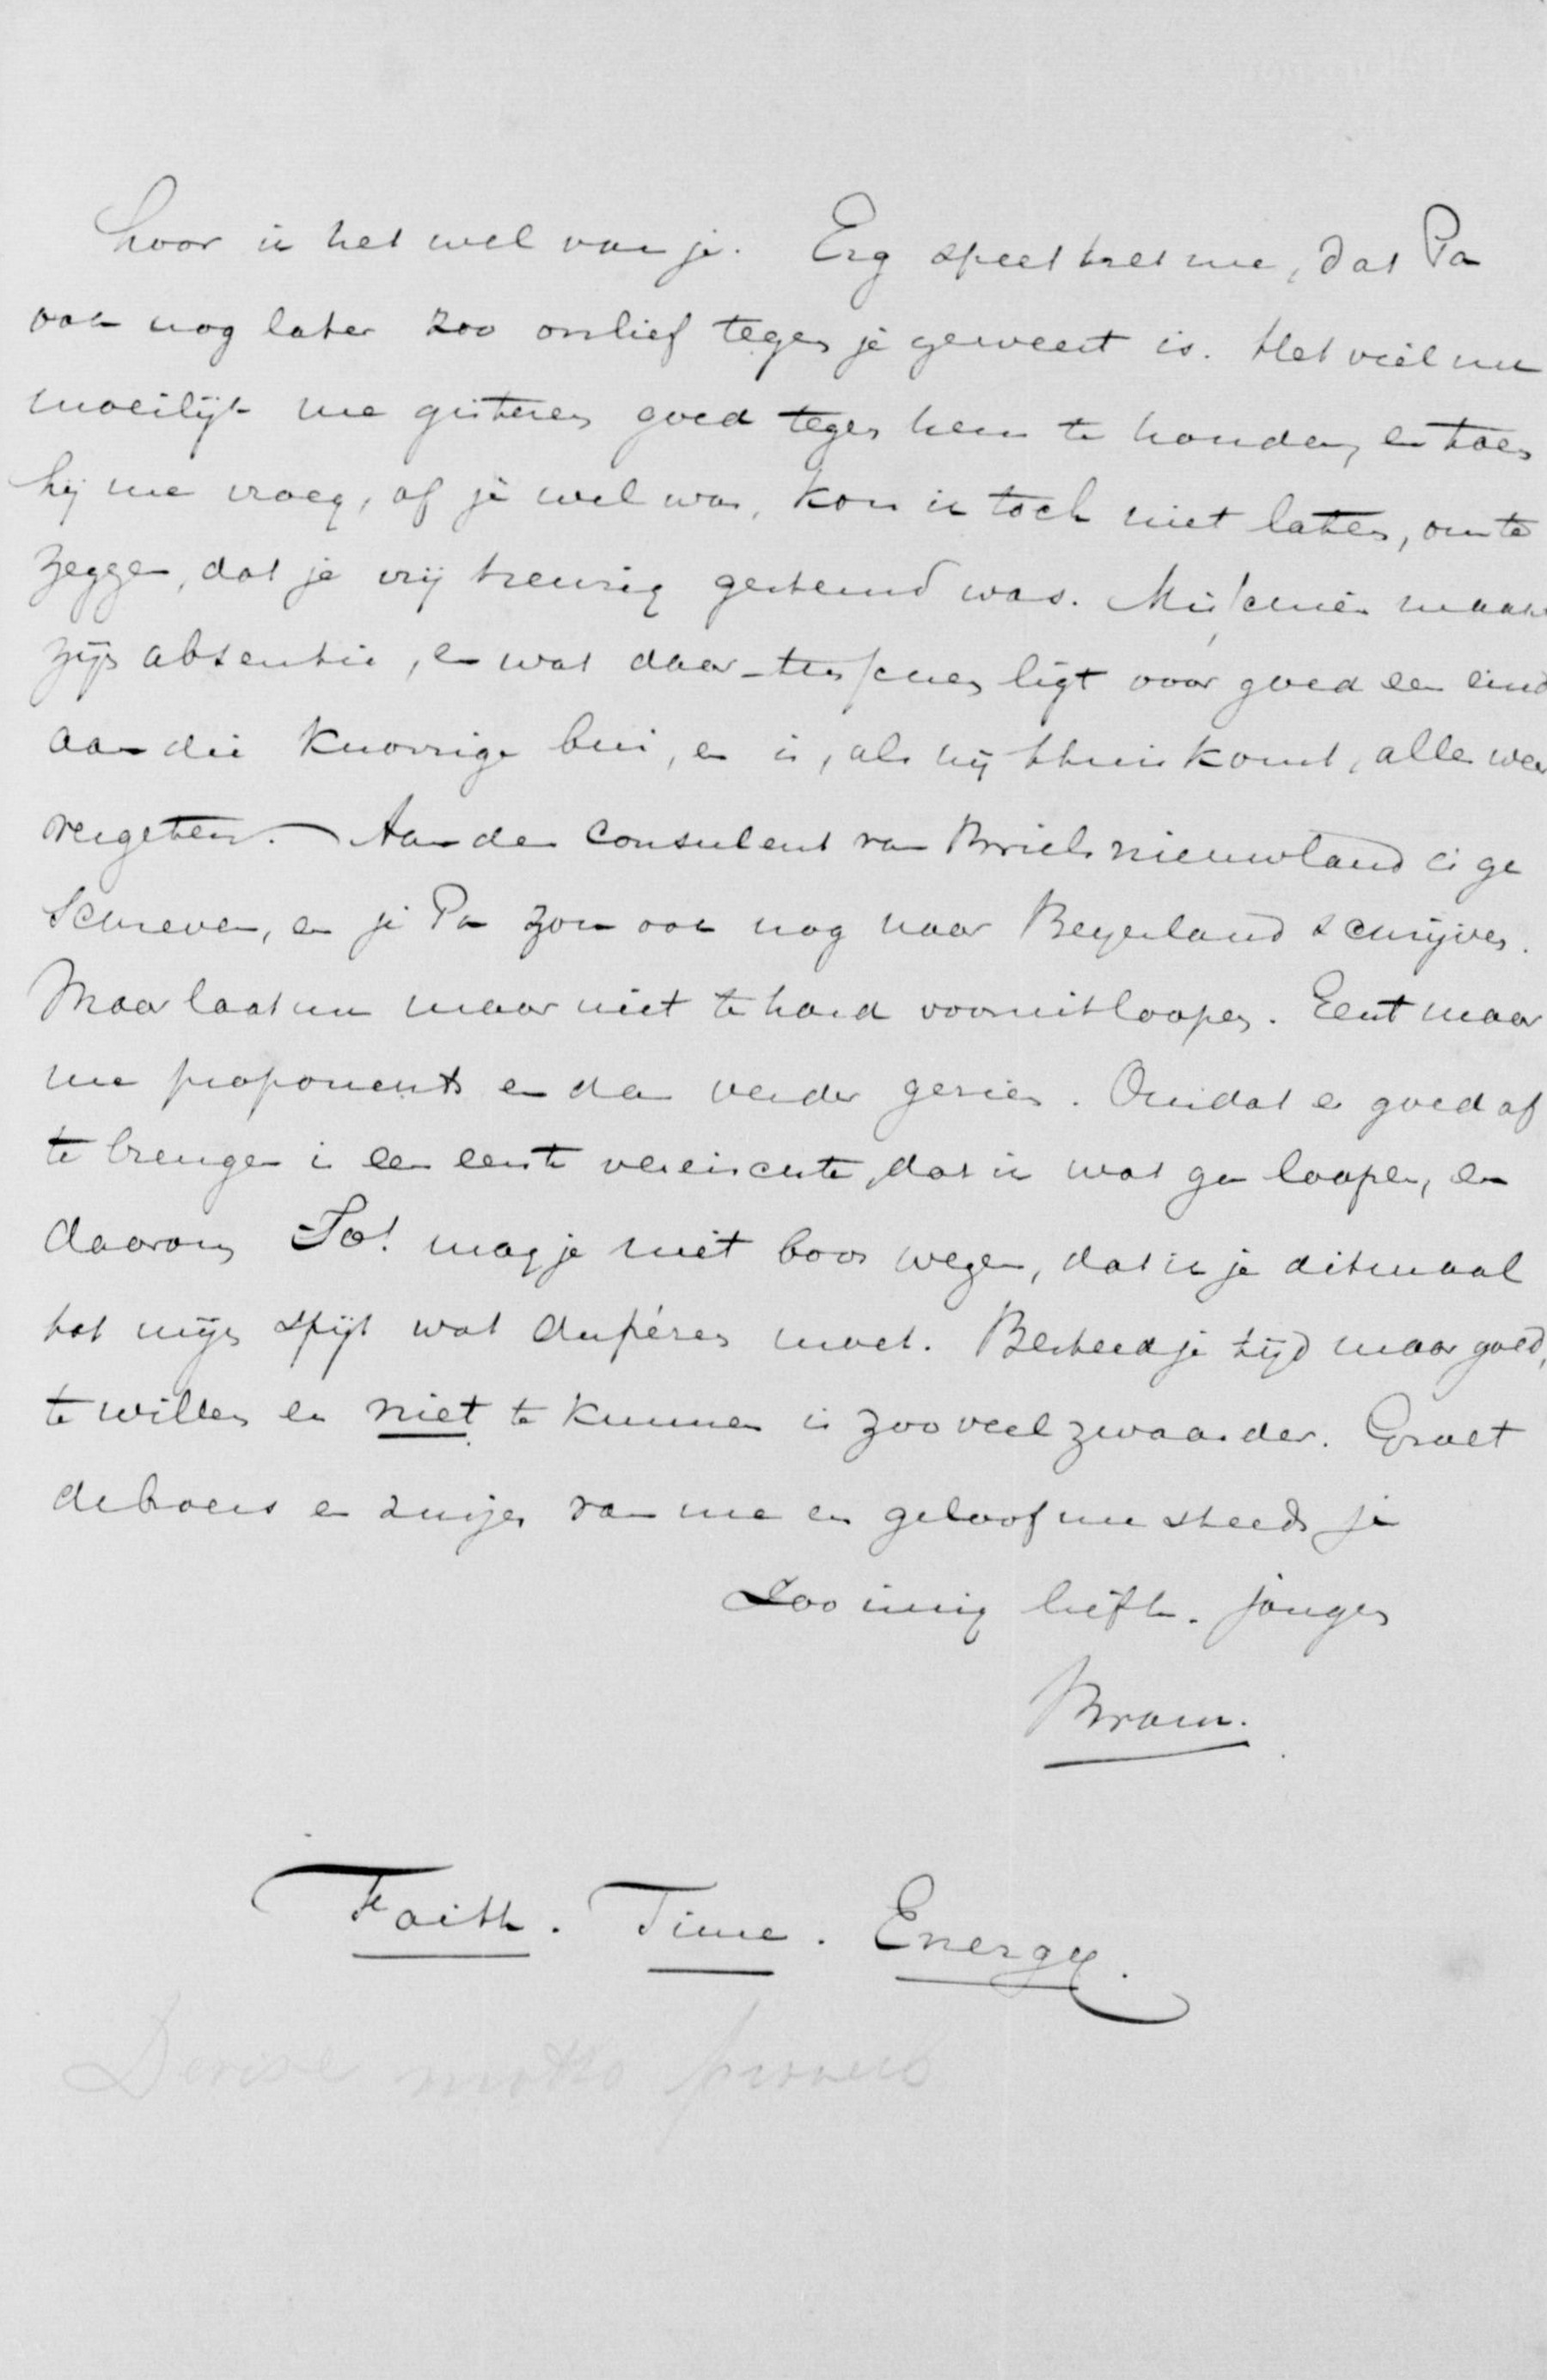 hoor ik het wel van je. Erg speet het me, dat Pa
ook nog later zoo onlief tegen je geweest is. Het viel me
moeilijk me gisteren goed tegen hem te houden, en toen
hij me vroeg, of je wel was, kon ik toch niet laten, om te
zeggen, dat je vrij treurig gestemd was. Misschien maakt
zijn absentie, en wat daar-tusschen ligt voor goed een eind
aan die knorrige bui, en is, als hij thuis komt, alles weer
vergeten. Aan den Consulent van Brielsnieuwland is ge
schreven, en je Pa zou ook nog naar Beyerland schrijven.
Maar laat me maar niet te hard vooruitloopen. Eerst maar
me proponents en dan verder gezien. Om dat er goed af
te brengen is een eerste vereischte, dat ik wat ga loopen, en
daarom Jo! mag je niet boos wezen, dat ik je ditmaal
tot mijn spijt wat dupéren moet. Besteed je tijd maar goed,
te willen en niet te kunnen is zooveel zwaarder. Groet
de broers en zusjes van me en geloof me steeds je
zoo innig liefh. jongen
Bram.
Faith. Time. Energy.
Devise motto